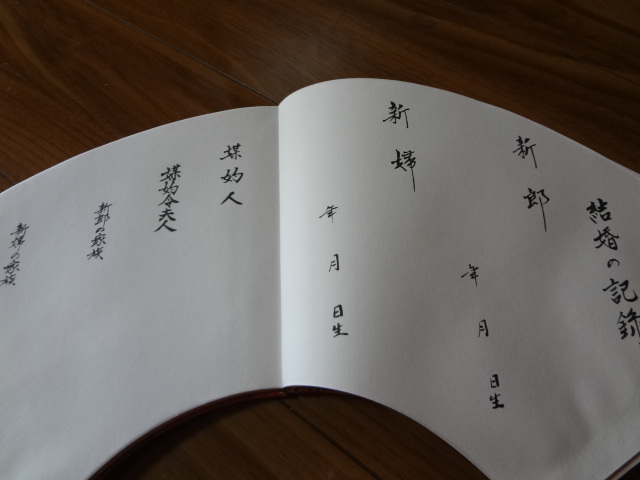 結婚の記録
新郎
年 月 日生
新婦
年 月 日生
媒妁人
媒妁令夫人
新郎の家族
新婦の家族